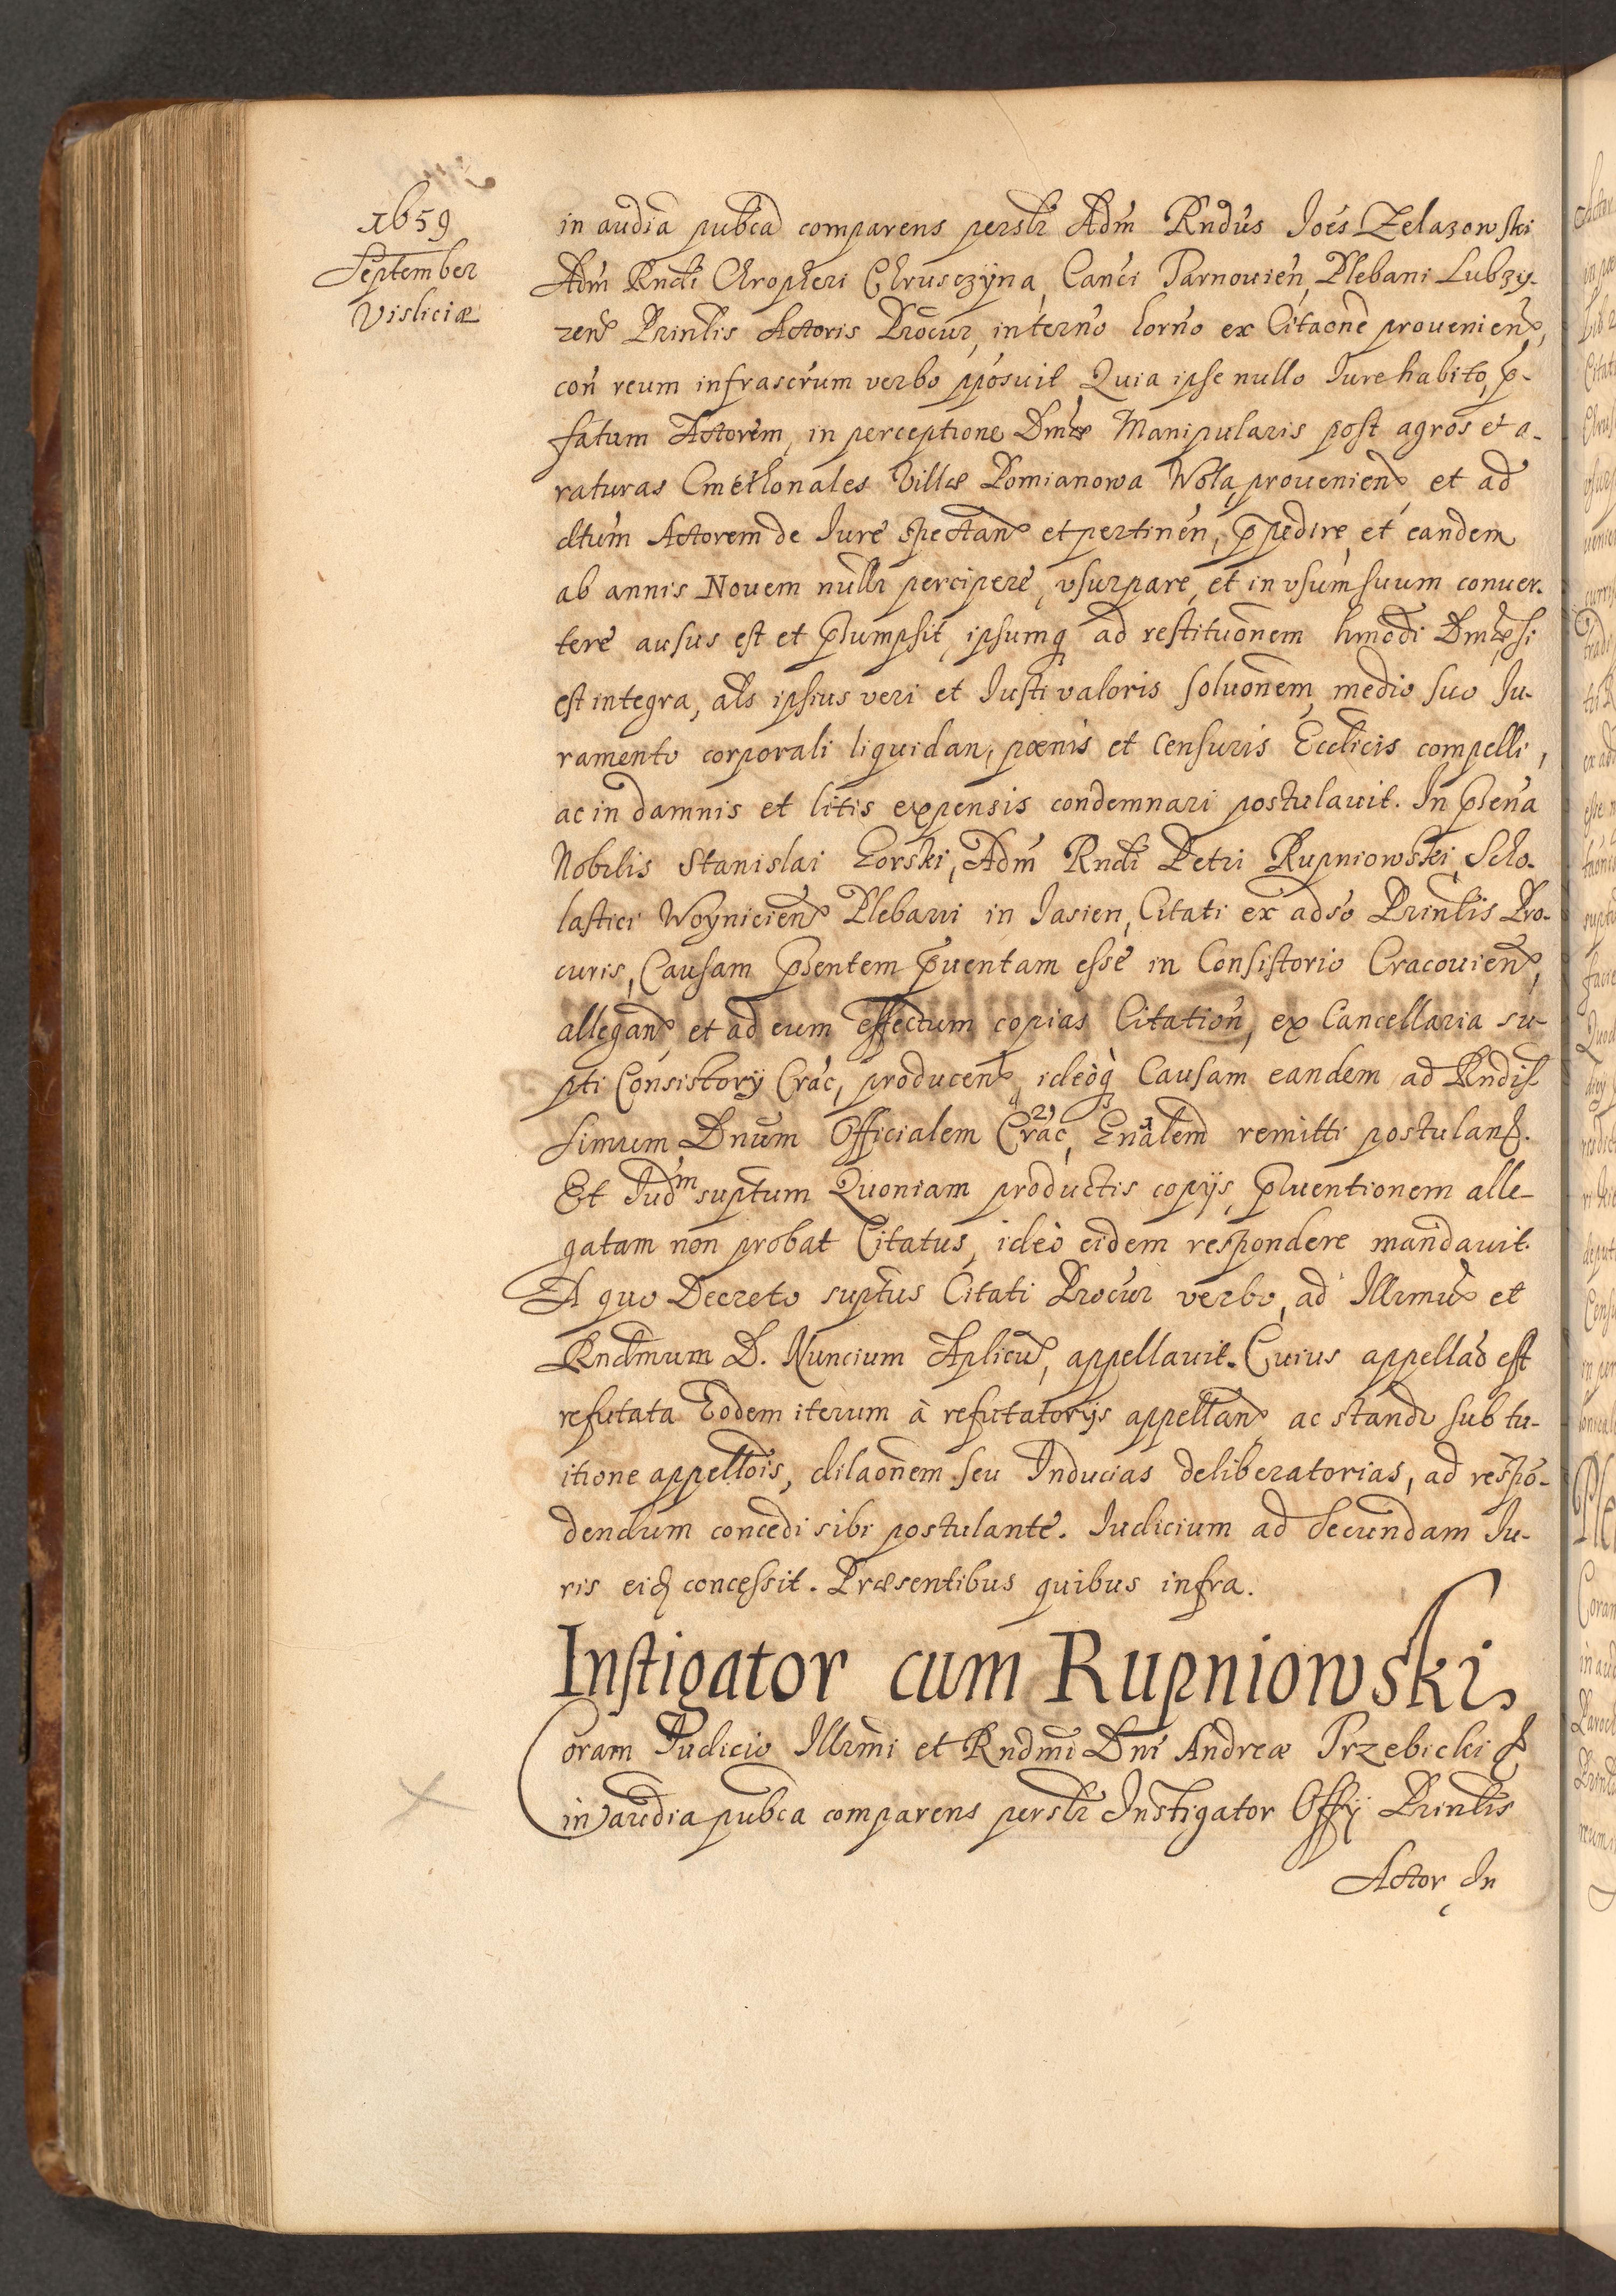 1659
September
Visliciæ
in audia pubca comparens persłr Adm Rndus Joes Zelazowski
Adm Rndi Chropheri Chrusczÿna, Canci Tarnouien, Plebani Lubzy-
zen Prinlis Actoris Procur, interno horno ex Citaone prouenien,
con reum infrascrum verbo pposuit Quia ipse nullo Iure habito, p-
fatum Actorem, in perceptione Dmæ Manipularis post agros et a-
raturas Cmethonales Villæ Domianowa Wola, prouenien et ad
dtum Actorem de Iure spectan et pertinen, ppedire, et eandem
ab annis Nouem nullr percipere, vsurpare, et in vsum suum conuer-
tere ausus est et psumpsit, ipsumq ad restituonem hmodi Dmæ, si
est integra, als ipsius veri et Iusti valoris soluonem, medio suo Iu-
ramento corporali liquidan, pœnis et Censuris Ecclicis compelli,
ac in damnis et litis expensis condemnari postulauit. In psena
Nobilis Stanislai Gorski, Adm Rndi Petri Rupniowski, Scho-
lastici Woÿnicien Plebani in Iasien, Citati ex adso Prinlis Pro-
curis, Causam psentem puentam esse in Consistorio Cracouien,
allegan, et ad eum effectum copias Citation, ex Cancellaria su-
pti Consistorij Crac, producen, ideoq Causam eandem ad Rndis-
simum Dnum Officialem Crac, Gnalem remitti postulan.
Et Iudm suptum Quoniam productis copijs, puentionem alle-
gatam non probat Citatus, ideò eidem respondere mandauit.
A quo Decreto suptus Citati Procur verbo, ad Illrmu et
Rndmum D. Nuncium Aplicu, appellauit. Cuius appellao est
refutata Eodem iterum à refutatorijs appellan, ac stando sub tu-
itione appellois, dilaonem seu Inducias deliberatorias, ad respo-
dendum concedi sibi postulante. Iudicium ad Secundam Iu-
ris eid concessit. Præsentibus quibus infra.
Instigator cum Rupniowski
Coram Iudicio Illrmi et Rndmi Dni Andreæ Trzebicki &
in audia pubca comparens persłr Instigator Offÿ Prinlis
Actor, In